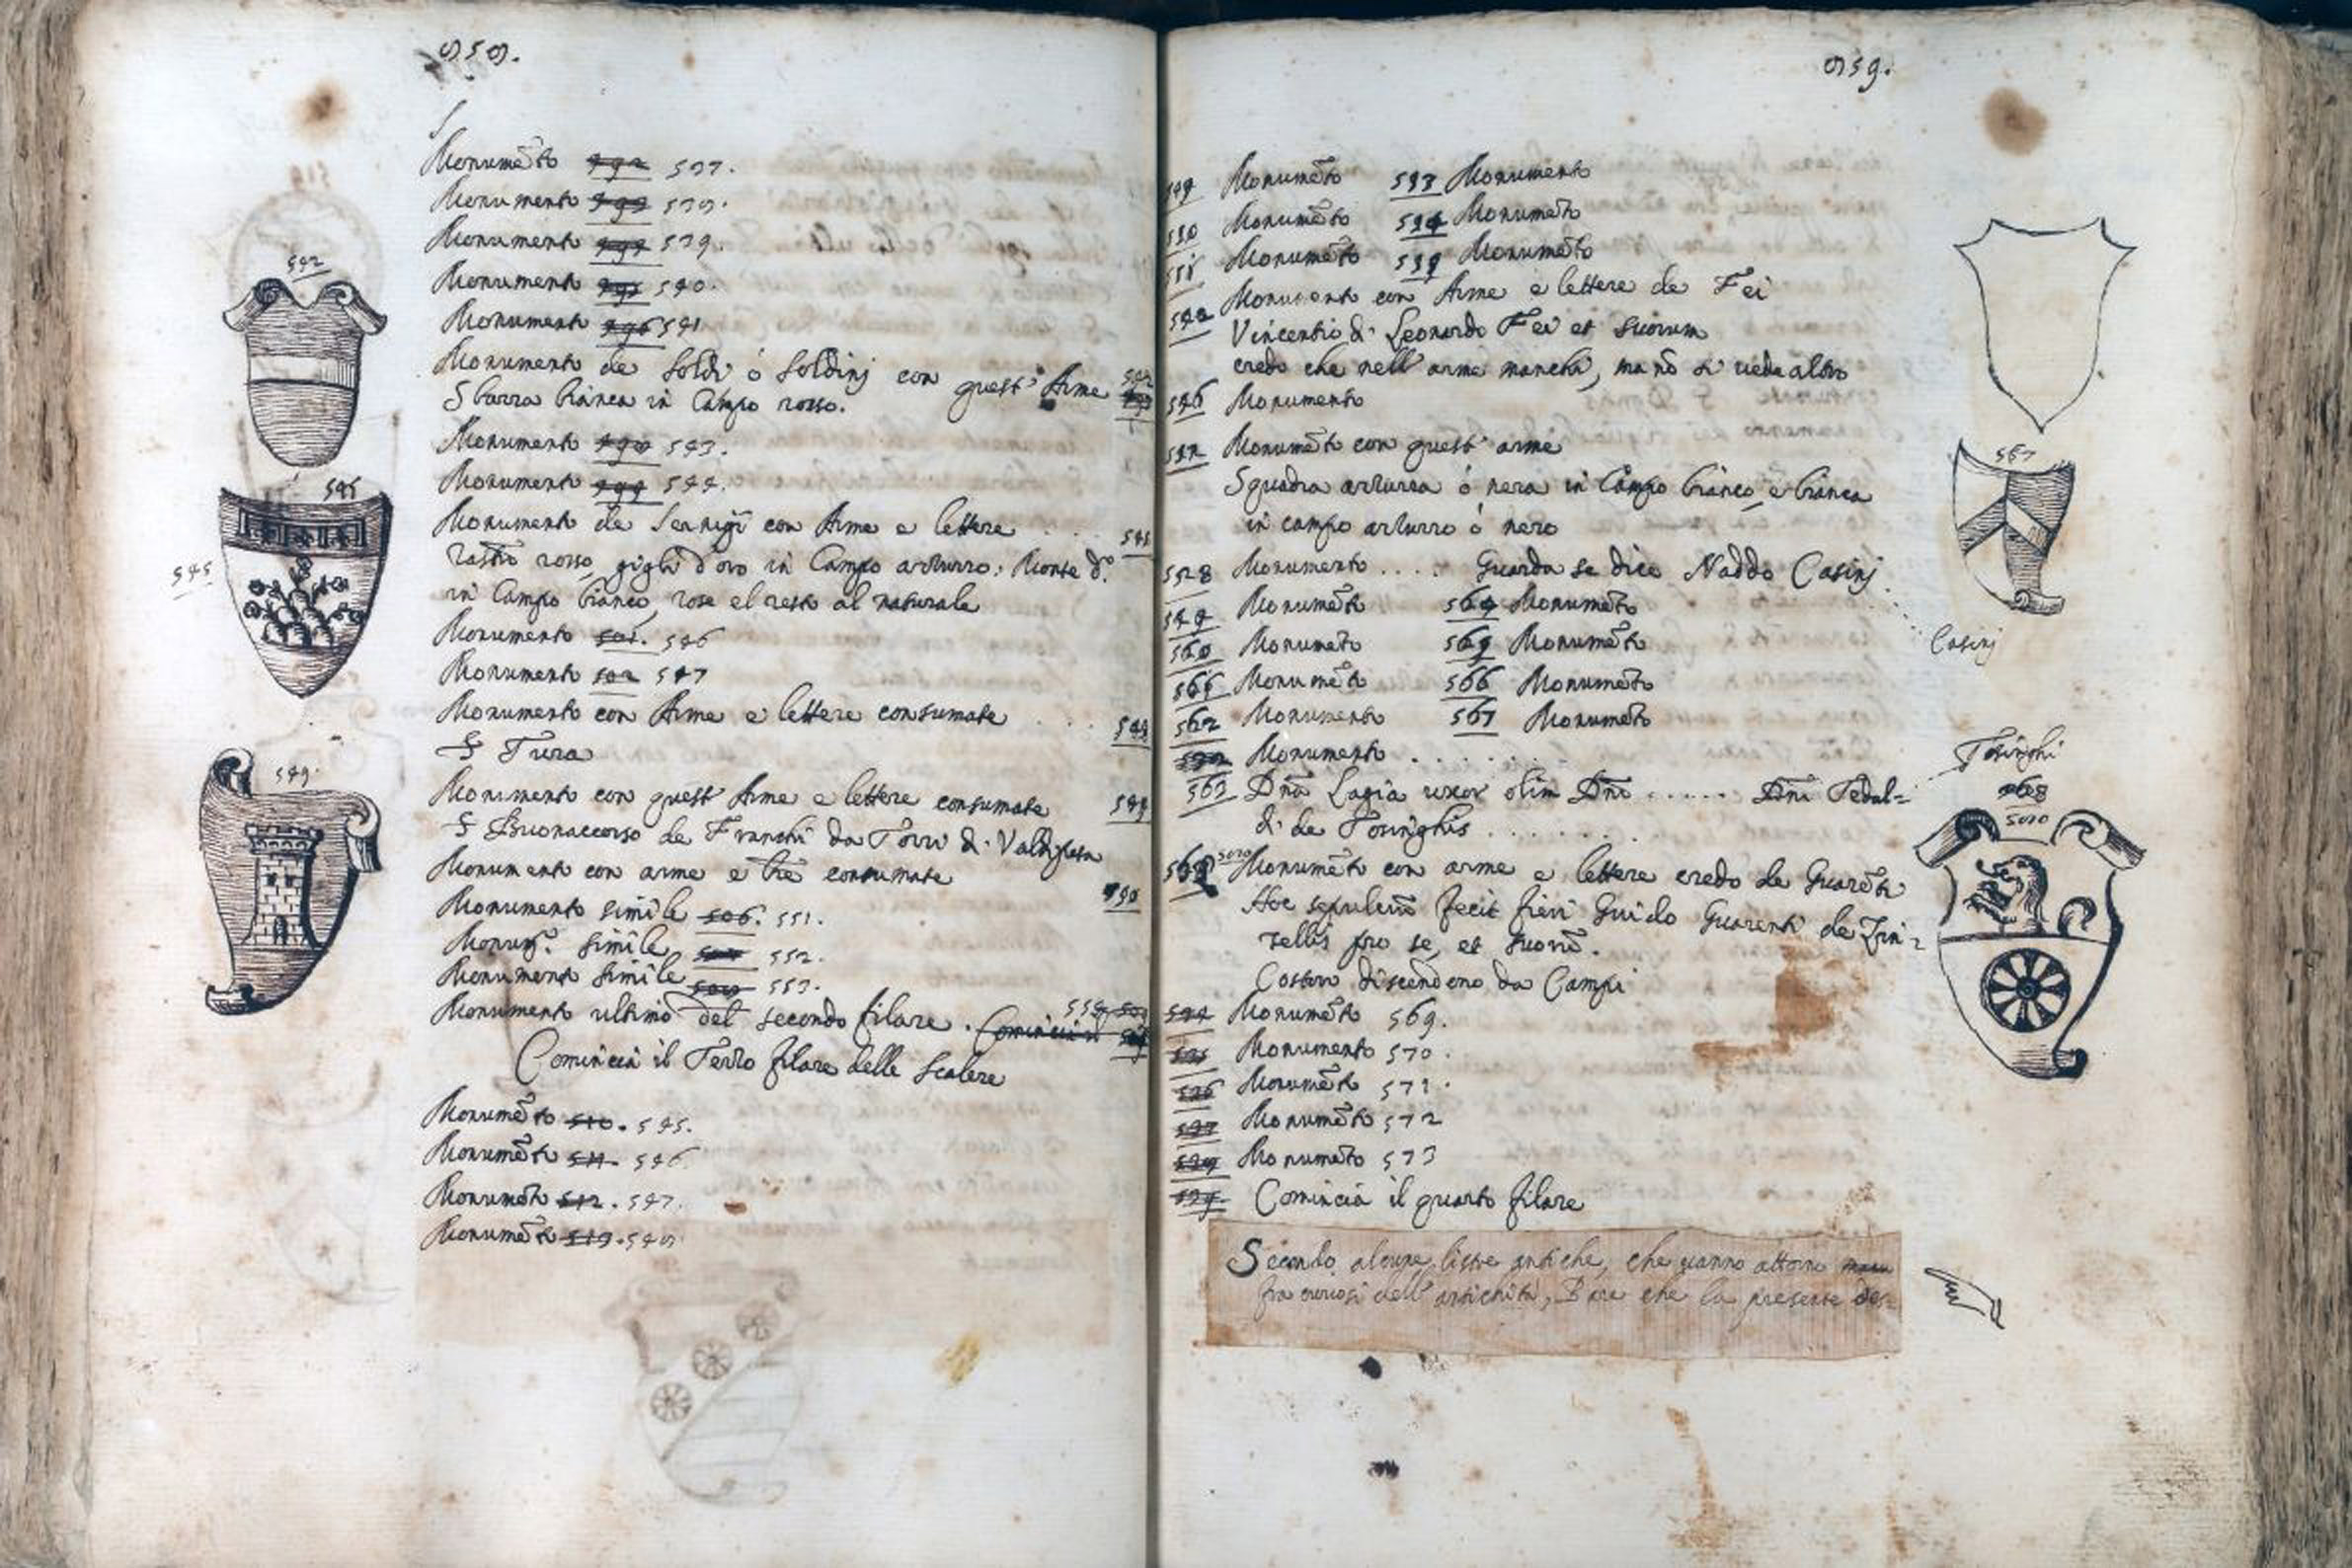 Monumẽto 537.
Monumento
Monumento 539.
Monumento 540.
Monumento 541
Monumento de Soldi ò Soldinj con quest' Arme 542
Sbarra bianca in Campo rosso.
Monumento 543.
Monumento 544.
Monumento de Sernigi con Arme e lettere 545
rastro rosso, gigli d'oro in Campo azzurro: Monte d'
in Campo bianco, rose el resto al naturale
Monumento 501. 546
Monumento 502 547
Monumento con Arme e lettere consumate
S Tura
Monumento con quest' Arme e lettere consumate 549
S Buonaccorso de Franchi da Torri di Valdipesa
Monumento con arme e lrẽ consumate
Monumento simile 506. 551.
simile 552.
Monumento simile 553.
Monumento ultimo del secondo filare. Comincia il
Comincia il Terzo filare delle scalere
Monumẽto 510. 545.
Monumẽto 511. 546
Monumẽto 512. 547.
Monumẽto 513.
542
545
545
549.
959.
Monumẽto Monumento
Monumẽto Monumẽto
Monumẽto Monumẽto
Monumento con Arme e lettere de Fei
Vincentio di Leonardo Fei et suorum
credo che nell' arme manchi, ma nõ si vede altro
Monumento
Monumẽto con quest' arme
Squadra azzurra ò nera in Campo bianco, e bianca
in campo azzurro ò nero
Monumento .... Guarda se dice Naddo Casinj
Monumẽto 564 Monumẽto
560 Monumẽto Monumẽto
561 Monumẽto 566 Monumẽto
562 Monumento 567 Monumẽto
Monumento ......
563 Dña Lagia uxor olim Dñi ...... Dñi Tedal=
di de Tosinghis .......
Monumẽto con arme e lettere credo de Guarẽti
Hoc sepulcrũ fecit fieri Guido Guarenti de
pro se, et suorũ.
Costoro discendeno da Campi
Monumẽto 569.
Monumento 570.
Monumẽto 571.
Monumẽto 572
Monumẽto 573
Comincia il quarto filare
Secondo alcune liste antiche, che vanno attorno
fra curiosi dell' antichità, Pare che la presente des=
557
Casinj
Tosinghi